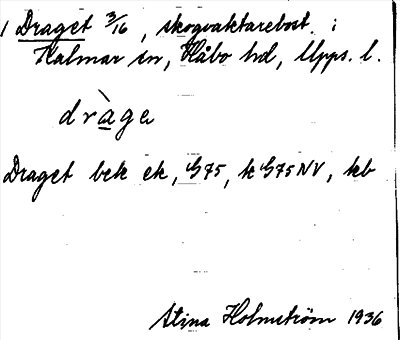 1 Draget 3/16, skogvaktarebost. i
Kalmar sn, Håbo hd, Upps. l.
dràge
Draget bek ek, G75, k G75NV, kb
Stina Holmström 1936